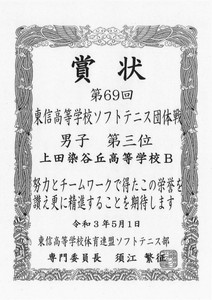 賞状
第69回
東信高等学校ソフトテニス団体戦
男子 第三位
上田染谷丘高等学校B
努力とチームワークで得たこの栄誉を
讃え更に精進することを期待します
令和3年5月1日
東信高等学校体育連盟ソフトテニス部
専門委員長 須江 繁征